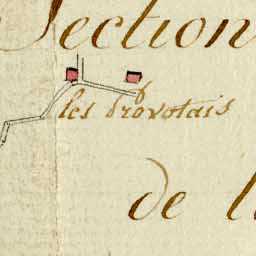 Section
les provotais
de l